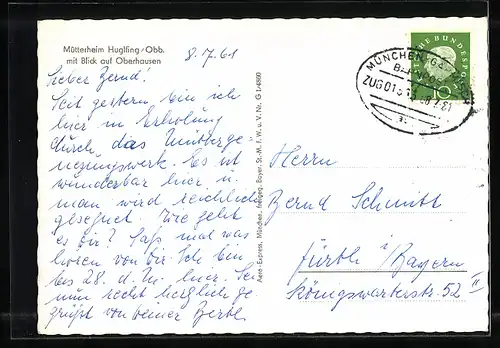 Mütterheim Huglfing/Obb.
mit Blick auf Oberhausen
8.7.61
Lieber Bernd!
Seit gestern bin ich
hier in Erholung
durch das Müttergenesungswerk. Es ist
wunderbar hier u.
man wird reichlich
gesegnet. Wie geht
es Dir? Laß mal was
hören von Dir. Ich bin
bis 28. d. M. hier. Sei
nun recht herzlich ge
grüßt von Deiner
Aero-Express, München, freigeg. Bayer. St. M. f. W. u. V. Nr. G 14/860
DEUTSCHE BUNDESPOST
10
MÜNCHEN
BAHNPOST
ZUG
Herrn
Bernd Schmitt
Fürth i/Bayern
Königswarterstr. 52 II